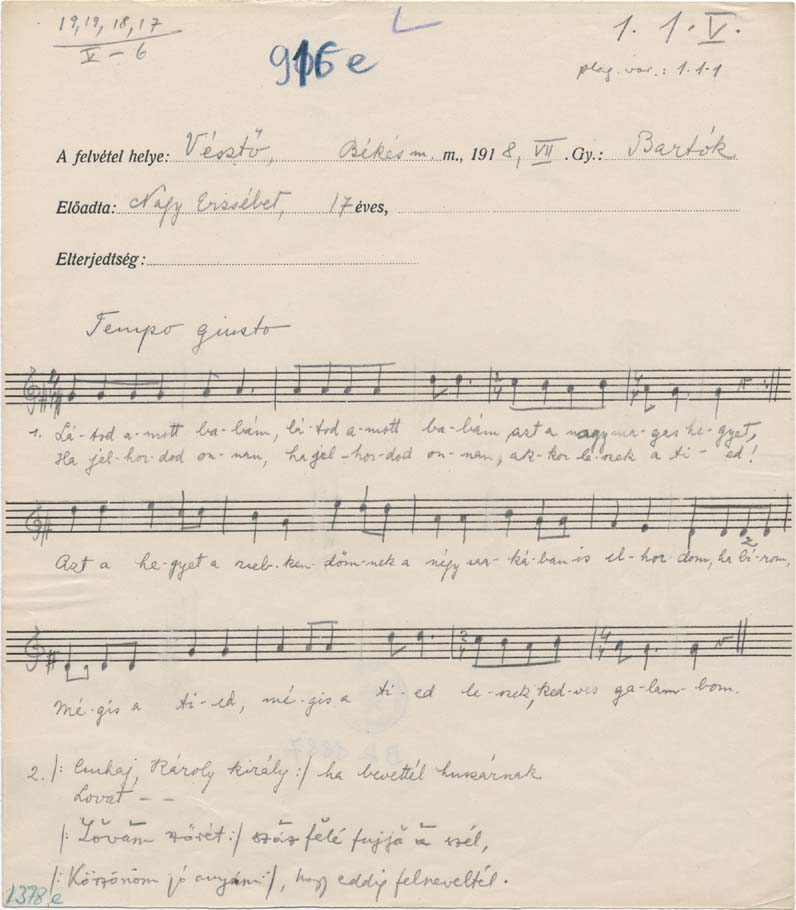 19, 19, 18, 17
V – 6
916 e
1. 1. V.
plag. var.: 1.1.1
A felvétel helye: Vésztő, Békés m. m., 1918, VII .Gy.: Bartók
Előadta: Nagy Erzsébet, 17 éves,
Elterjedtség:
Tempo giusto
1. Lá-tod a-mott ba-bám, lá-tod a-mott ba-bám, azt a nagyma-gas he-gyet,
Ha jel-hor-dod on-nan, ha jel-hor-dod on-nan, ak-kor le-szek a ti-ed!
Azt a he-gyet a zseb-ken-dőm-nek a négy sar-ká-ban is el-hor dom, ha bí-rom,
Mé-gis a ti-ed, mé-gis a ti-ed le-szek, ked-ves ga-lam-bom.
2. /: Csuhaj, Károly király :/ ha bevettél huszárnak
Lovat – –
/: Lovam szőrét :/ száz felé fujja a szél,
/: Köszönöm jó anyám :/, hogy eddig felneveltél.
1378, e